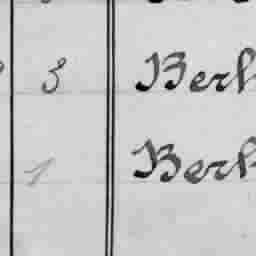 3 Berl
1 Berl